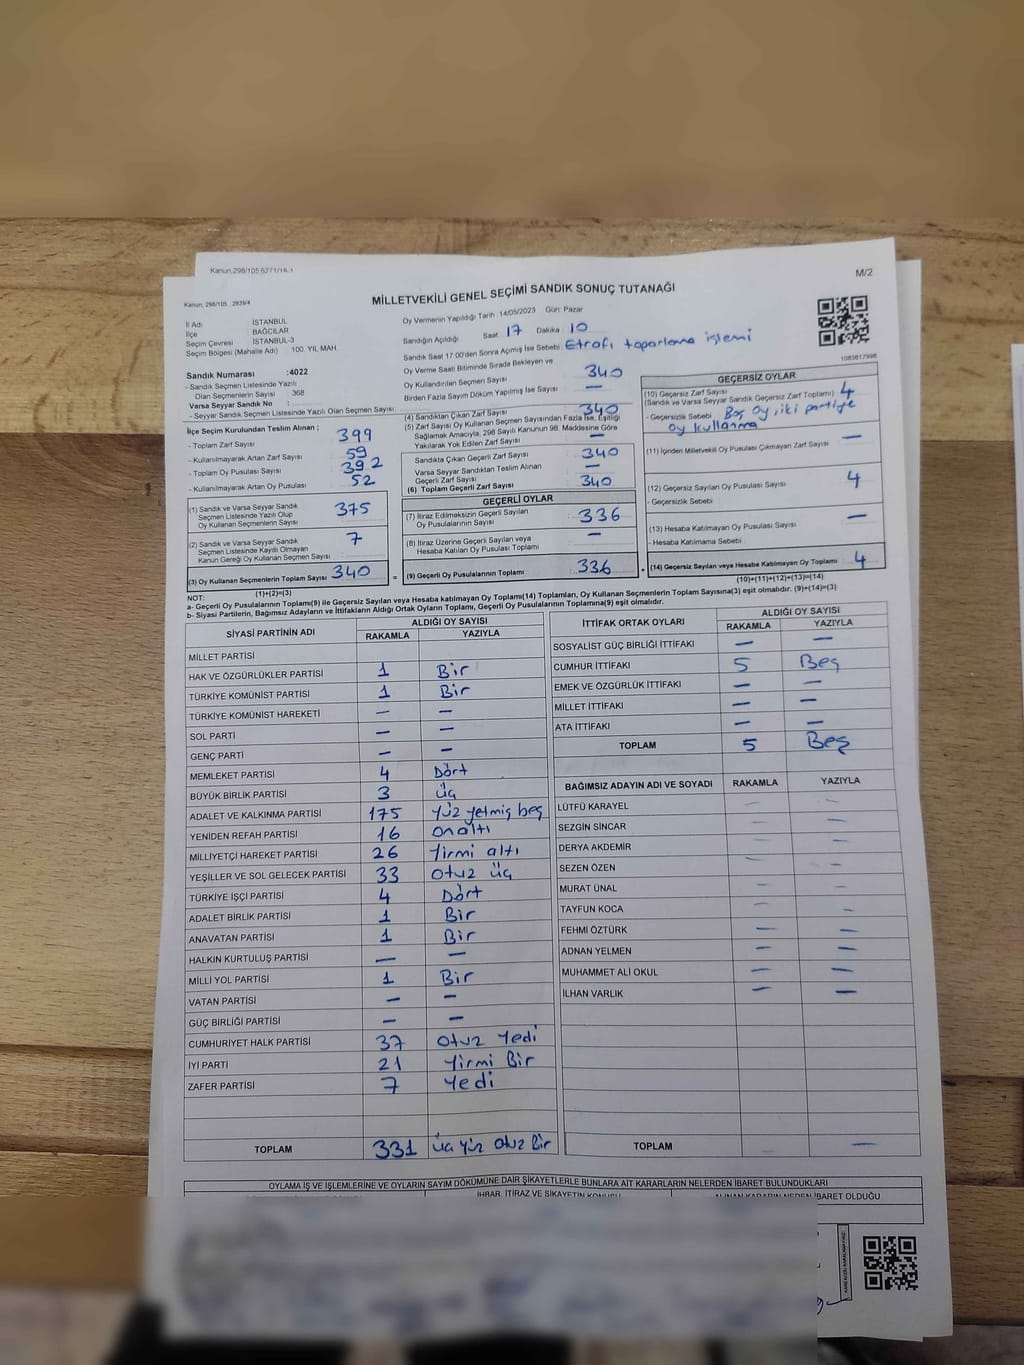 Kanun,298/105 6271/18.1
Kanun, 298/105, 2839/4
M/2
MİLLETVEKİLİ GENEL SEÇİMİ SANDIK SONUÇ TUTANAĞI
İl Adı İSTANBUL
İlçe BAĞCILAR
Seçim Çevresi İSTANBUL-3
Seçim Bölgesi (Mahalle Adı) 100. YIL MAH
Oy Vermenin Yapıldığı Tarih 14/05/2023 Gün: Pazar
Sandığın Açıldığı Saat 17 Dakika 10
Sandık Saat 17.00'den Sonra Açımış İse Sebebi Etrafı toparlama işlemi
Oy Verme Saati Bitiminde Sırada Bekleyen ve
Oy Kullandırılan Seçmen Sayısı 340
Birden Fazla Sayım Döküm Yapılmış İse Sayısı —
1083617998
Sandık Numarası :4022
- Sandık Seçmen Listesinde Yazılı
Olan Seçmenlerin Sayısı 368
Varsa Seyyar Sandık No :
- Seyyar Sandık Seçmen Listesinde Yazılı Olan Seçmen Sayısı
İlçe Seçim Kurulundan Teslim Alınan ;
- Toplam Zarf Sayısı 399
- Kullanılmayarak Artan Zarf Sayısı 59
- Toplam Oy Pusulası Sayısı 392
- Kullanılmayarak Artan Oy Pusulası 52
(1) Sandık ve Varsa Seyyar Sandık
Seçmen Listesinde Yazılı Olup
Oy Kullanan Seçmenlerin Sayısı 375
(2) Sandık ve Varsa Seyyar Sandık
Seçmen Listesinde Kayıtlı Olmayan
Kanun Gereği Oy Kullanan Seçmen Sayısı 7
(3) Oy Kullanan Seçmenlerin Toplam Sayısı 340
(1)+(2)=(3)
(4) Sandıktan Çıkan Zarf Sayısı 340
(5) Zarf Sayısı Oy Kullanan Seçmen Sayısından Fazla İse, Eşitliği
Sağlamak Amacıyla, 298 Sayılı Kanunun 98. Maddesine Göre
Yakılarak Yok Edilen Zarf Sayısı —
Sandıkta Çıkan Geçerli Zarf Sayısı 340
Varsa Seyyar Sandıktan Teslim Alınan
Geçerli Zarf Sayısı —
(6) Toplam Geçerli Zarf Sayısı 340
GEÇERLİ OYLAR
(7) İtiraz Edilmeksizin Geçerli Sayılan
Oy Pusulalarının Sayısı 336
(8) İtiraz Üzerine Geçerli Sayılan veya
Hesaba Katılan Oy Pusulası Toplamı —
= (9) Geçerli Oy Pusulalarının Toplamı 336
GEÇERSİZ OYLAR
(10) Geçersiz Zarf Sayısı
(Sandık ve Varsa Seyyar Sandık Geçersiz Zarf Toplamı) 4
- Geçersizlik Sebebi Boş oy, iki partiye
oy kullanma
(11) İçinden Milletvekili Oy Pusulası Çıkmayan Zarf Sayısı —
(12) Geçersiz Sayılan Oy Pusulası Sayısı 4
- Geçersizlik Sebebi
(13) Hesaba Katılmayan Oy Pusulası Sayısı —
- Hesaba Katılmama Sebebi
+ (14) Geçersiz Sayılan veya Hesaba Katılmayan Oy Toplamı 4
(10)+(11)+(12)+(13)=(14)
NOT:
a- Geçerli Oy Pusulalarının Toplamı(9) ile Geçersiz Sayılan veya Hesaba katılmayan Oy Toplamı(14) Toplamları, Oy Kullanan Seçmenlerin Toplam Sayısına(3) eşit olmalıdır. (9)+(14)=(3)
b- Siyasi Partilerin, Bağımsız Adayların ve İttifakların Aldığı Ortak Oyların Toplamı, Geçerli Oy Pusulalarının Toplamına(9) eşit olmalıdır.
SİYASİ PARTİNİN ADI ALDIĞI OY SAYISI
RAKAMLA YAZIYLA
MİLLET PARTİSİ
HAK VE ÖZGÜRLÜKLER PARTİSİ 1 Bir
TÜRKİYE KOMÜNİST PARTİSİ 1 Bir
TÜRKİYE KOMÜNİST HAREKETİ — —
SOL PARTİ — —
GENÇ PARTİ — —
MEMLEKET PARTİSİ 4 Dört
BÜYÜK BİRLİK PARTİSİ 3 üç
ADALET VE KALKINMA PARTİSİ 175 Yüz yetmiş beş
YENİDEN REFAH PARTİSİ 16 onaltı
MİLLİYETÇİ HAREKET PARTİSİ 26 Yirmi altı
YEŞİLLER VE SOL GELECEK PARTİSİ 33 Otuz üç
TÜRKİYE İŞÇİ PARTİSİ 4 Dört
ADALET BİRLİK PARTİSİ 1 Bir
ANAVATAN PARTİSİ 1 Bir
HALKIN KURTULUŞ PARTİSİ — —
MİLLİ YOL PARTİSİ 1 Bir
VATAN PARTİSİ — —
GÜÇ BİRLİĞİ PARTİSİ — —
CUMHURİYET HALK PARTİSİ 37 Otuz Yedi
İYİ PARTİ 21 Yirmi Bir
ZAFER PARTİSİ 7 Yedi
TOPLAM 331 üç Yüz Otuz Bir
İTTİFAK ORTAK OYLARI ALDIĞI OY SAYISI
RAKAMLA YAZIYLA
SOSYALİST GÜÇ BİRLİĞİ İTTİFAKI — —
CUMHUR İTTİFAKI 5 Beş
EMEK VE ÖZGÜRLÜK İTTİFAKI — —
MİLLET İTTİFAKI — —
ATA İTTİFAKI — —
TOPLAM 5 Beş
BAĞIMSIZ ADAYIN ADI VE SOYADI RAKAMLA YAZIYLA
LÜTFÜ KARAYEL — —
SEZGİN SİNCAR — —
DERYA AKDEMİR — —
SEZEN ÖZEN — —
MURAT ÜNAL — —
TAYFUN KOCA — —
FEHMİ ÖZTÜRK — —
ADNAN YELMEN — —
MUHAMMET ALİ OKUL — —
İLHAN VARLIK — —
TOPLAM — —
OYLAMA İŞ VE İŞLEMLERİNE VE OYLARIN SAYIM DÖKÜMÜNE DAİR ŞİKAYETLERLE BUNLARA AİT KARARLARIN NELERDEN İBARET BULUNDUKLARI
İHBAR, İTİRAZ VE ŞİKAYETİN KONUSU ALINAN KARARIN NEDEN İBARET OLDUĞU